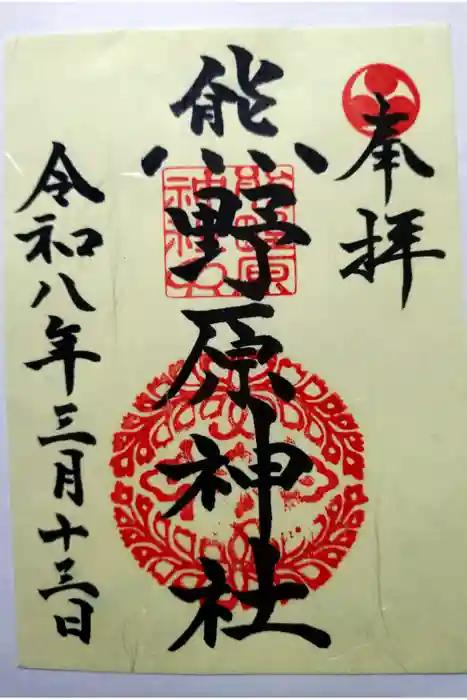 奉拝
熊野原神社
熊野原
神社
令和八年三月十三日